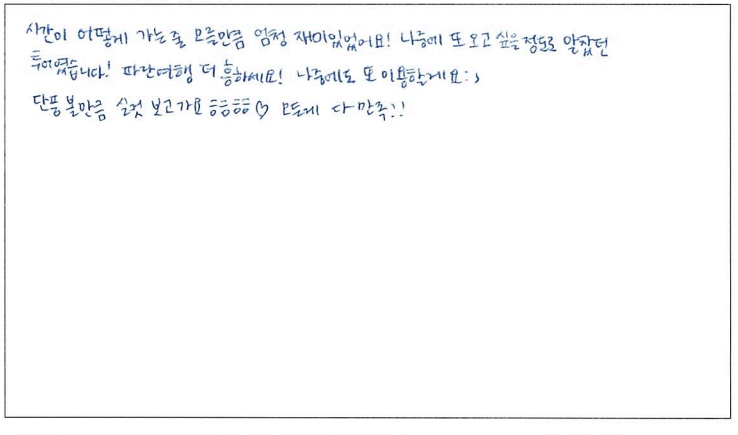 시간이 어떻게 가는 줄 모를만큼 엄청 재미있었어요! 나중에 또 오고 싶을 정도로 알찼던
투어였습니다! 파란여행 더 흥하세요! 나중에도 또 이용할게요:)
단풍 볼만큼 실컷 보고가요 ㅎㅎㅎㅎ♡ 모든게 다 만족!!